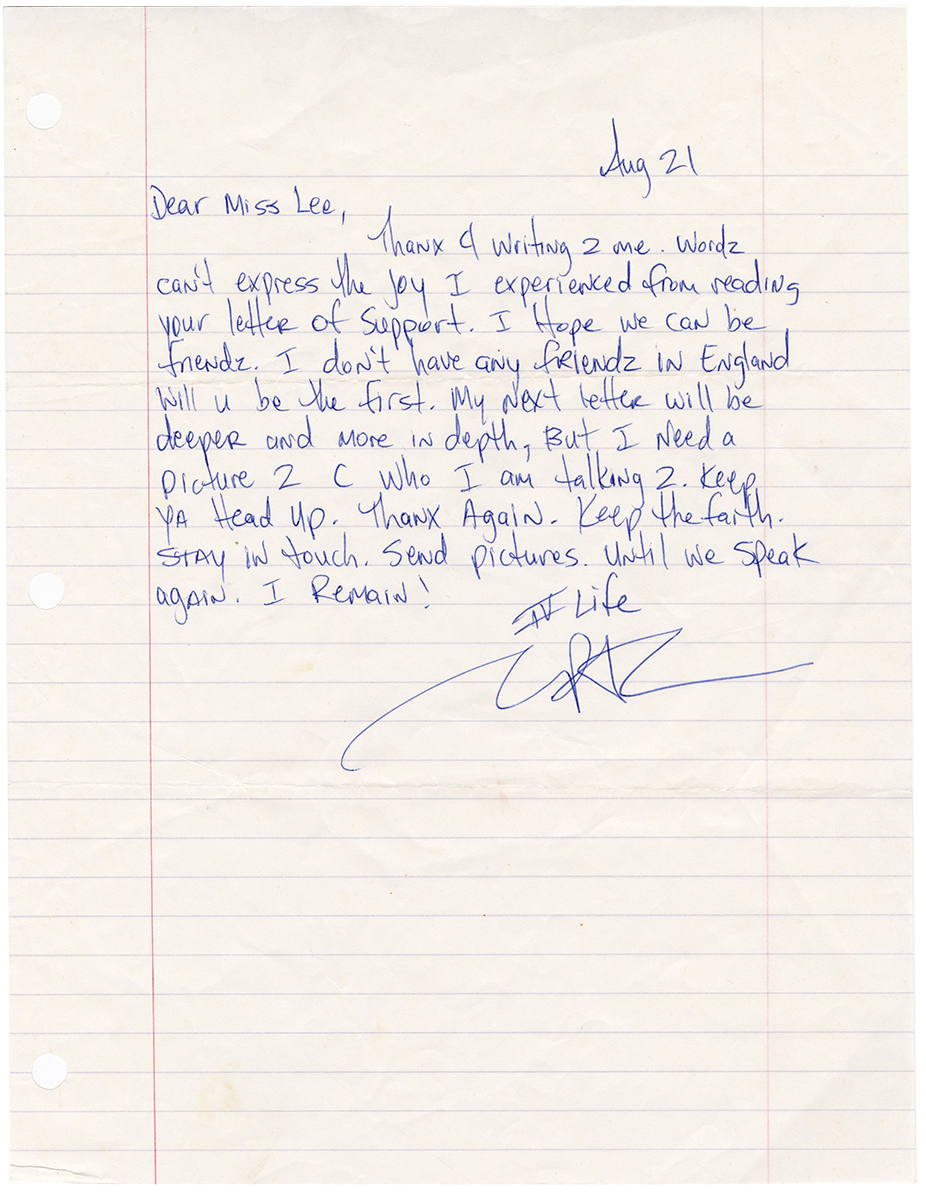 Aug 21
Dear Miss Lee,
Thanx 4 writing 2 me. Wordz
can't express the joy I experienced from reading
your letter of support. I Hope we can be
friendz. I don't have any friendz in England
Will u be the first. My next letter will be
deeper and more in depth, But I Need a
picture 2 C who I am talking 2. Keep
YA Head Up. Thanx Again. Keep the faith.
STAY in touch. Send pictures. Until we Speak
again. I Remain!
IV Life